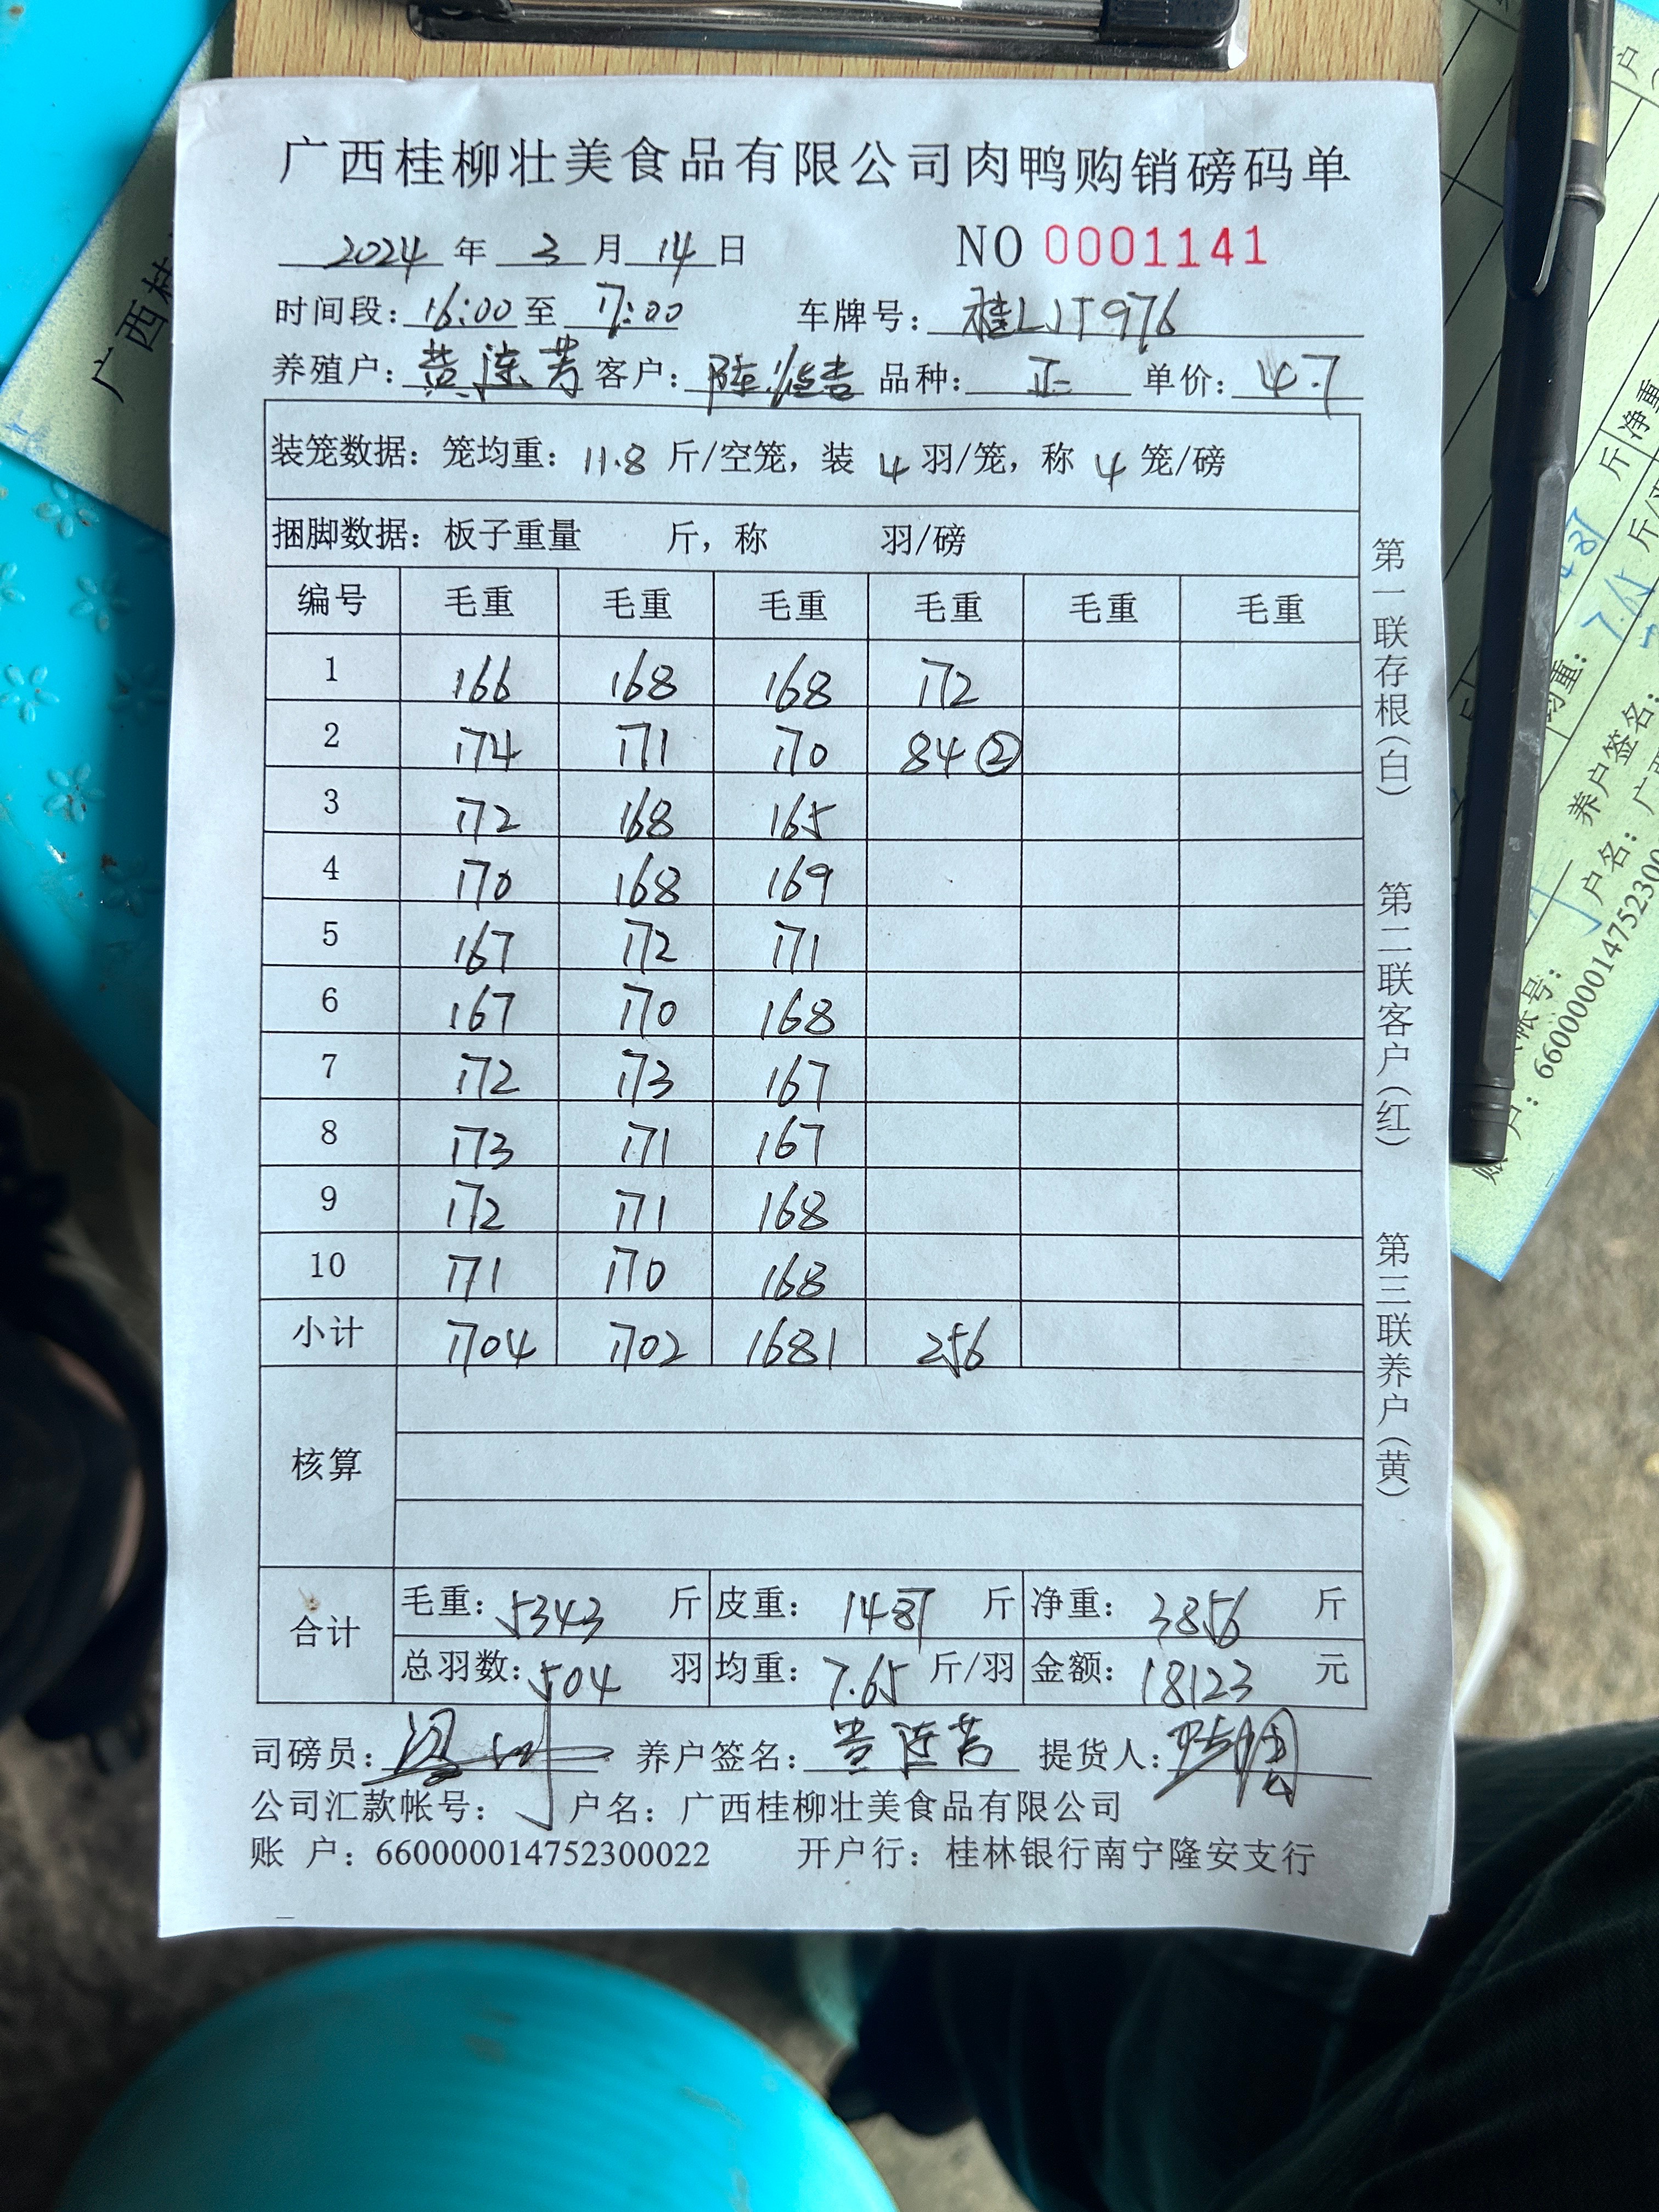 广西桂柳壮美食品有限公司肉鸭购销磅码单
2024 年 3 月 14 日 NO 0001141
时间段: 16:00 至 17:00 车牌号: 桂LJT976
养殖户: 黄连芳 客户: 品种: 正 单价: 4.7
装笼数据: 笼均重: 11.8 斤/空笼, 装 4 羽/笼, 称 4 笼/磅
捆脚数据: 板子重量 斤, 称 羽/磅
编号 毛重 毛重 毛重 毛重 毛重 毛重
1 166 168 168 172
2 174 171 170 84 ②
3 172 168 165
4 170 168 169
5 167 172 171
6 167 170 168
7 172 173 167
8 173 171 167
9 172 171 168
10 171 170 168
小计 1704 1702 1681 256
核算
合计
毛重: 5343 斤 皮重: 1487 斤 净重: 3856 斤
总羽数: 504 羽 均重: 7.65 斤/羽 金额: 18123 元
司磅员: 养户签名: 黄连芳 提货人:
公司汇款帐号: 户名: 广西桂柳壮美食品有限公司
账 户: 660000014752300022 开户行: 桂林银行南宁隆安支行
第一联存根(白) 第二联客户(红) 第三联养户(黄)
广西桂
净重
斤
7.65
养户签名:
户名: 广西
660000014752300